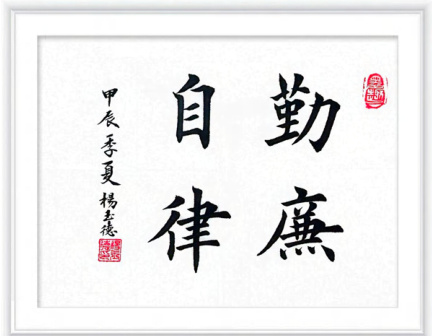 勤廉
自律
甲辰季夏楊玉德